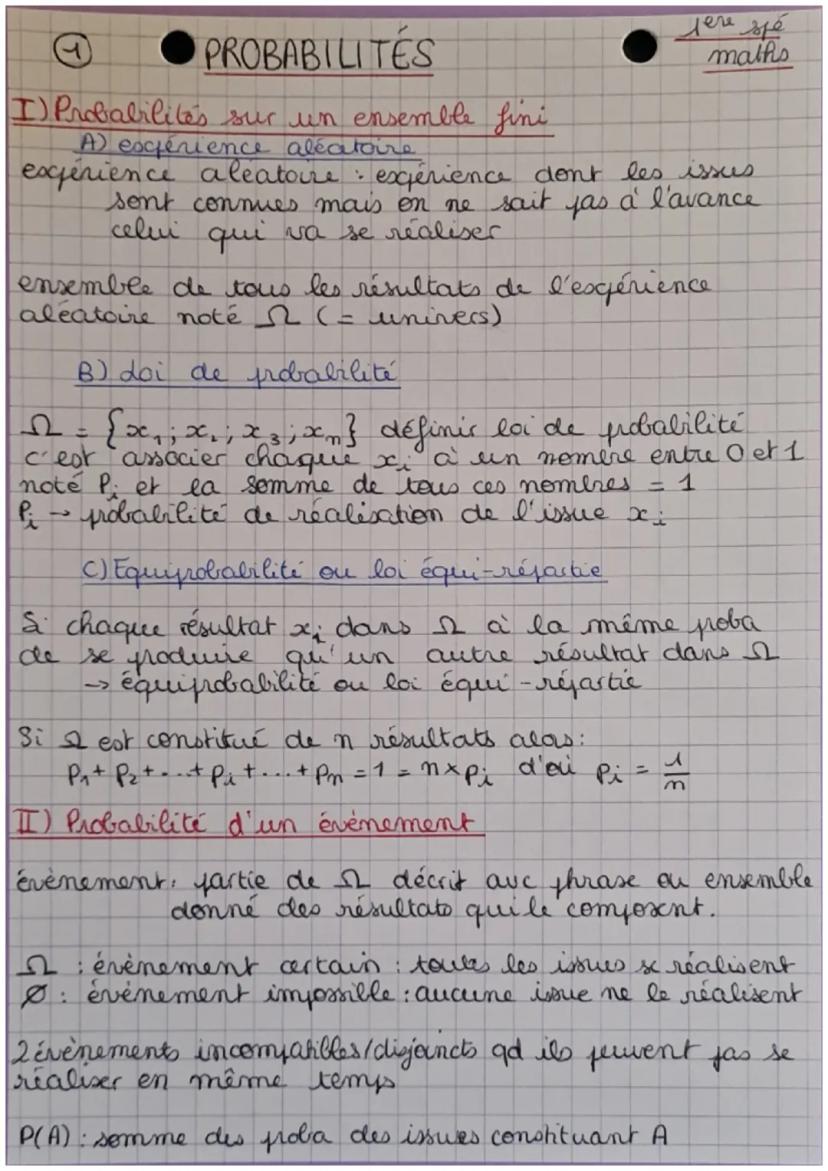 1 PROBABILITÉS 1ere spé
maths
I) Probabilités sur un ensemble fini
A) expérience aléatoire
expérience aléatoire : expérience dont les issus
sont connues mais on ne sait pas à l'avance
celui qui va se réaliser
ensemble de tous les résultats de l'expérience
aléatoire noté Ω (= univers)
B) Loi de probabilité
Ω = {x₁; x₂; x₃; xₙ} définir loi de probabilité
c'est associer chaque xᵢ à un nombre entre 0 et 1
noté Pᵢ et la somme de tous ces nombres = 1
Pᵢ → probabilité de réalisation de l'issue xᵢ
C) Equiprobabilité ou loi équi-répartie
Si chaque résultat xᵢ dans Ω à la même proba
de se produire qu'un autre résultat dans Ω
→ équiprobabilité ou loi équi-répartie
Si Ω est constitué de n résultats alors :
P₁ + P₂ + ... + Pᵢ + ... + Pₙ = 1 = n × Pᵢ d'où Pᵢ = 1/n
II) Probabilité d'un évènement
évènement : partie de Ω décrit avc phrase ou ensemble
donné des résultats qui le composent.
Ω : évènement certain : toutes les issues se réalisent
Ø : évènement impossible : aucune issue ne le réalisent
2 évènements incompatibles/disjoincts qd ils peuvent pas se
réaliser en même temps
P(A) : somme des proba des issues constituant A